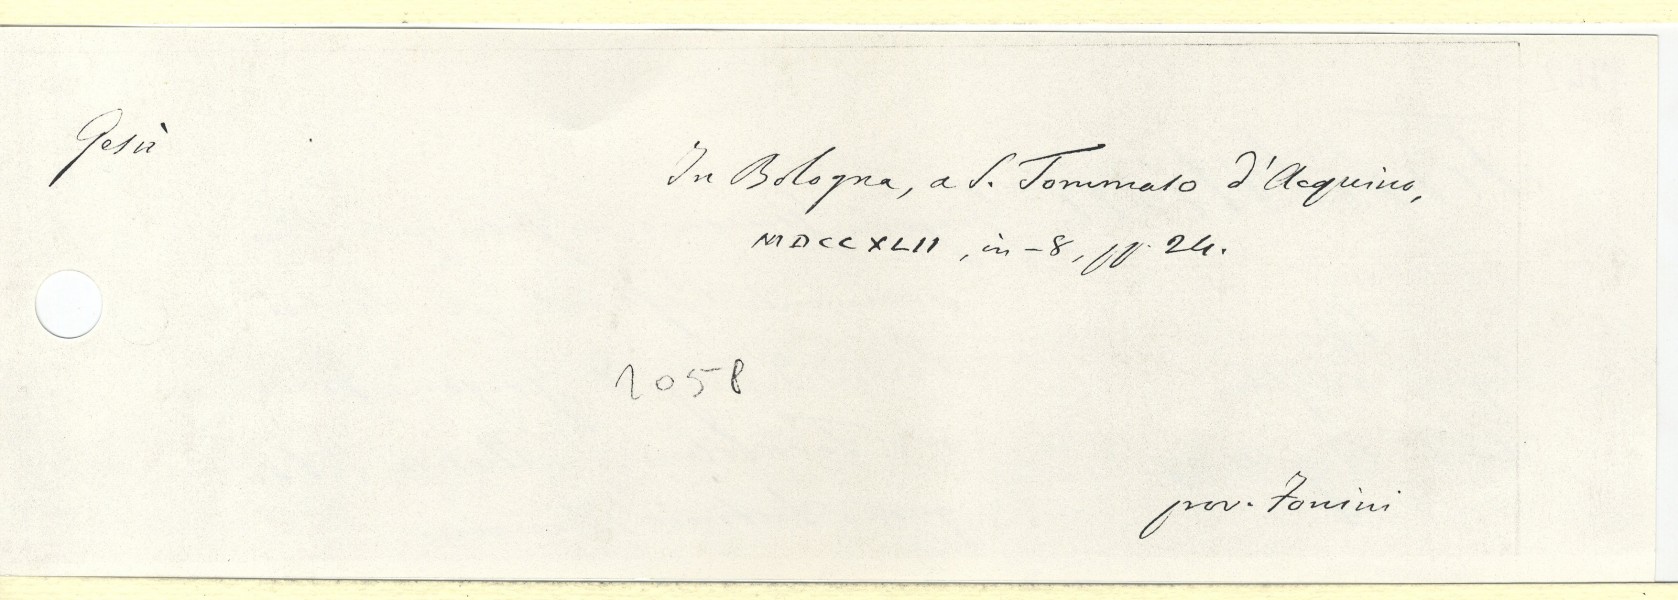 Gesù
In Bologna, a S. Tommaso d'Acquino,
MDCCXLII, in-8, pp. 24.
2058
prov.